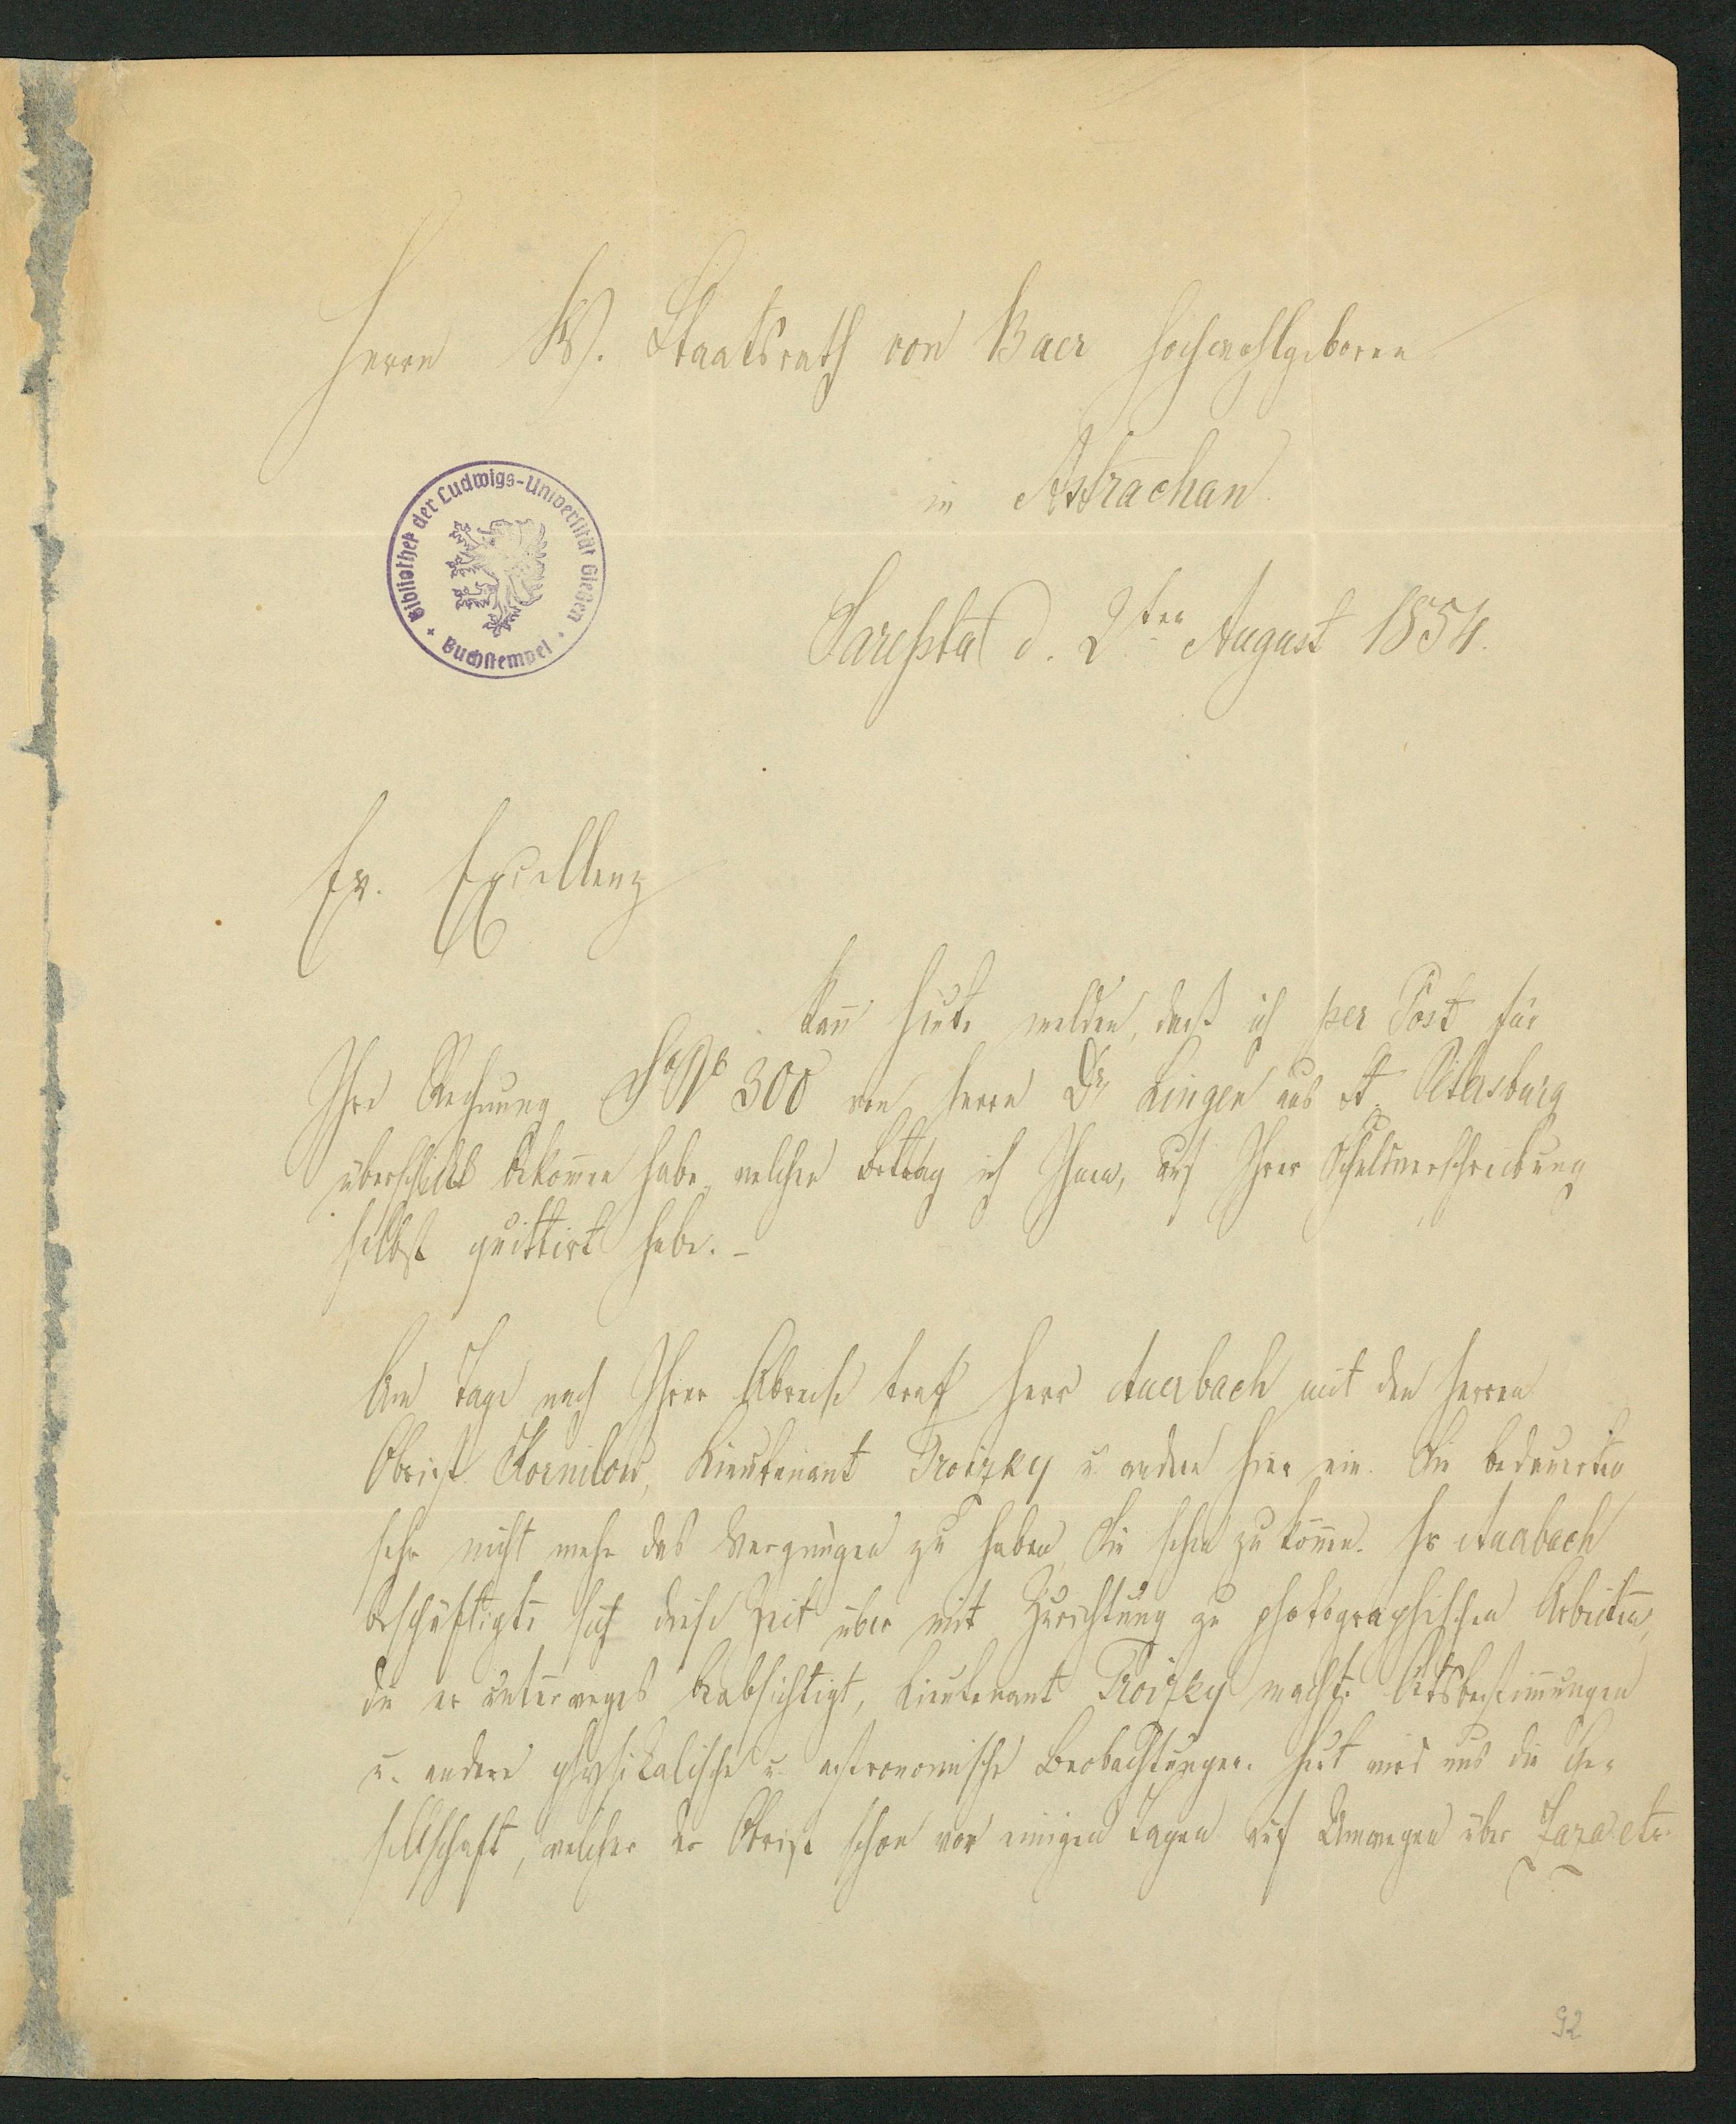 Herrn W. Staatsrath von Baer Hochwohlgeboren
in Astrachan.
Bibliothek der Ludwigs-Universität Gießen
Buchstempel
Sarepta d. 2ten August 1854.
Ew. Excellenz
kann heute melden, daß ich per Post für
Ihre Rechnung 300 von Herrn Dr Lingen aus St. Petersburg
überschickt bekomen habe, welchen Betrag ich Ihnen, auf Ihrer Schuldverschreibung
selbst quittirt habe. –
Am Tage nach Ihrer Abreise traf Herr Auerbach mit den Herren
Obrist Kornilow, Lieutenant Troizky u andern hier ein. Sie bedauerten
sehr nicht mehr das Vergnügen zu haben Sie sehen zu könen. Hr Auerbach
beschäftigte sich diese Zeit über mit Zurichtung zu photographischen Arbeiten,
die er unterweges beabsichtigt, Lieutenant Troizky machte Ortsbestimungen
u. andere physikalische u. astronomische Beobachtungen. Heut wird uns die Ge-
sellschaft, welcher der Obrist schon vor einigen Tagen auf Umwegen über etc.
92